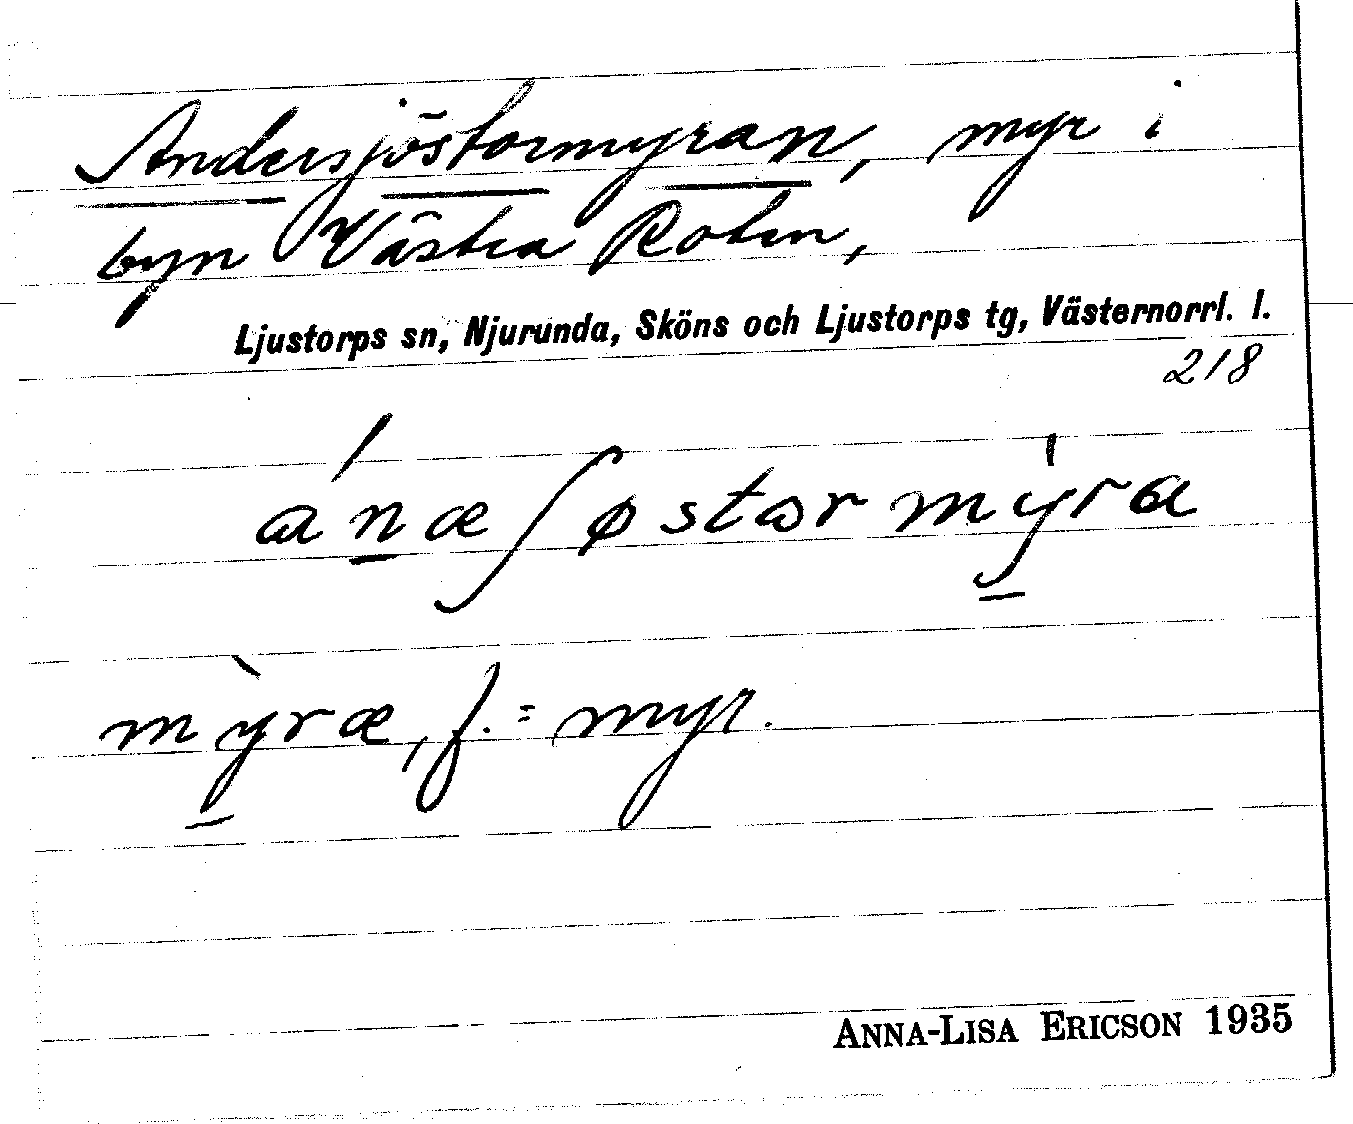 Andersjöstormyran, myr i
byn Västra Roten,
Ljustorps sn, Njurunda, Sköns och Ljustorps tg, Västernorrl. l.
218
ánæʃøstɷrmy̍ra
my̐ræ, f. = myr.
ANNA-LISA ERICSON 1935